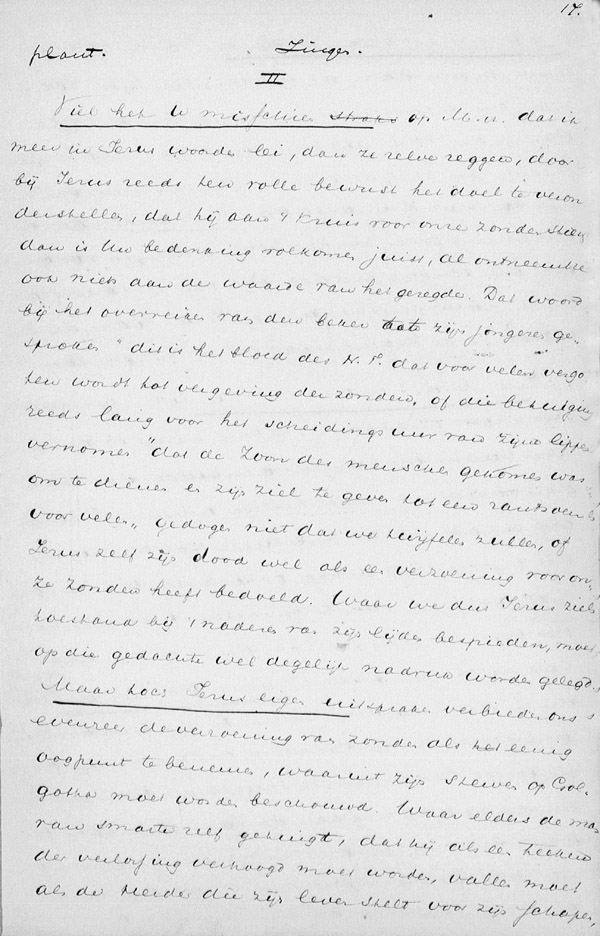 17.
plant. Zinger.
II
Viel het U misschien straks op M.H. dat ik
meer in Jezus woorden lei, dan ze zelve zeggen, door
bij Jezus reeds ten volle bewust het doel te veron
derstellen, dat hij aan 't kruis voor onze zonden stierf
dan is Uw bedenking volkomen juist, al ontneemt ze
ook niets aan de waarde van het gezegde. Dat woord
bij het overreiken van den beker tate zijn jongeren ge-
sproken "dit is het bloed des N.T. dat voor velen vergo
ten wordt tot vergeving der zonden, of die betuiging
reeds lang voor het scheidingsuur van zijne lippen
vernomen "dat de Zoon des menschen gekomen was
om te dienen en zijn ziel te geven tot een rantsoen
voor velen" gedogen niet dat we twijfelen zullen, of
Jezus zelf zijn dood wel als een verzoening voor on-
ze zonden heeft bedoeld. Waar we dus Jezus ziels
toestand bij 't naderen van zijn lijden bespieden, moet
op die gedachte wel degelijk nadruk worden gelegd.
Maar toch Jezus eigen uitspraken verbieden ons
evenzeer de verzoening van zonden als het eenig
oogpunt te benemen, waaruit zijn sterven op Gol-
gotha moet worden beschouwd. Waar elders de man
van smarte zelf getuigt, dat hij als een teeken
der verlossing verhoogd moet worden, vallen moet
als de Herder die zijn leven stelt voor zijn schapen,